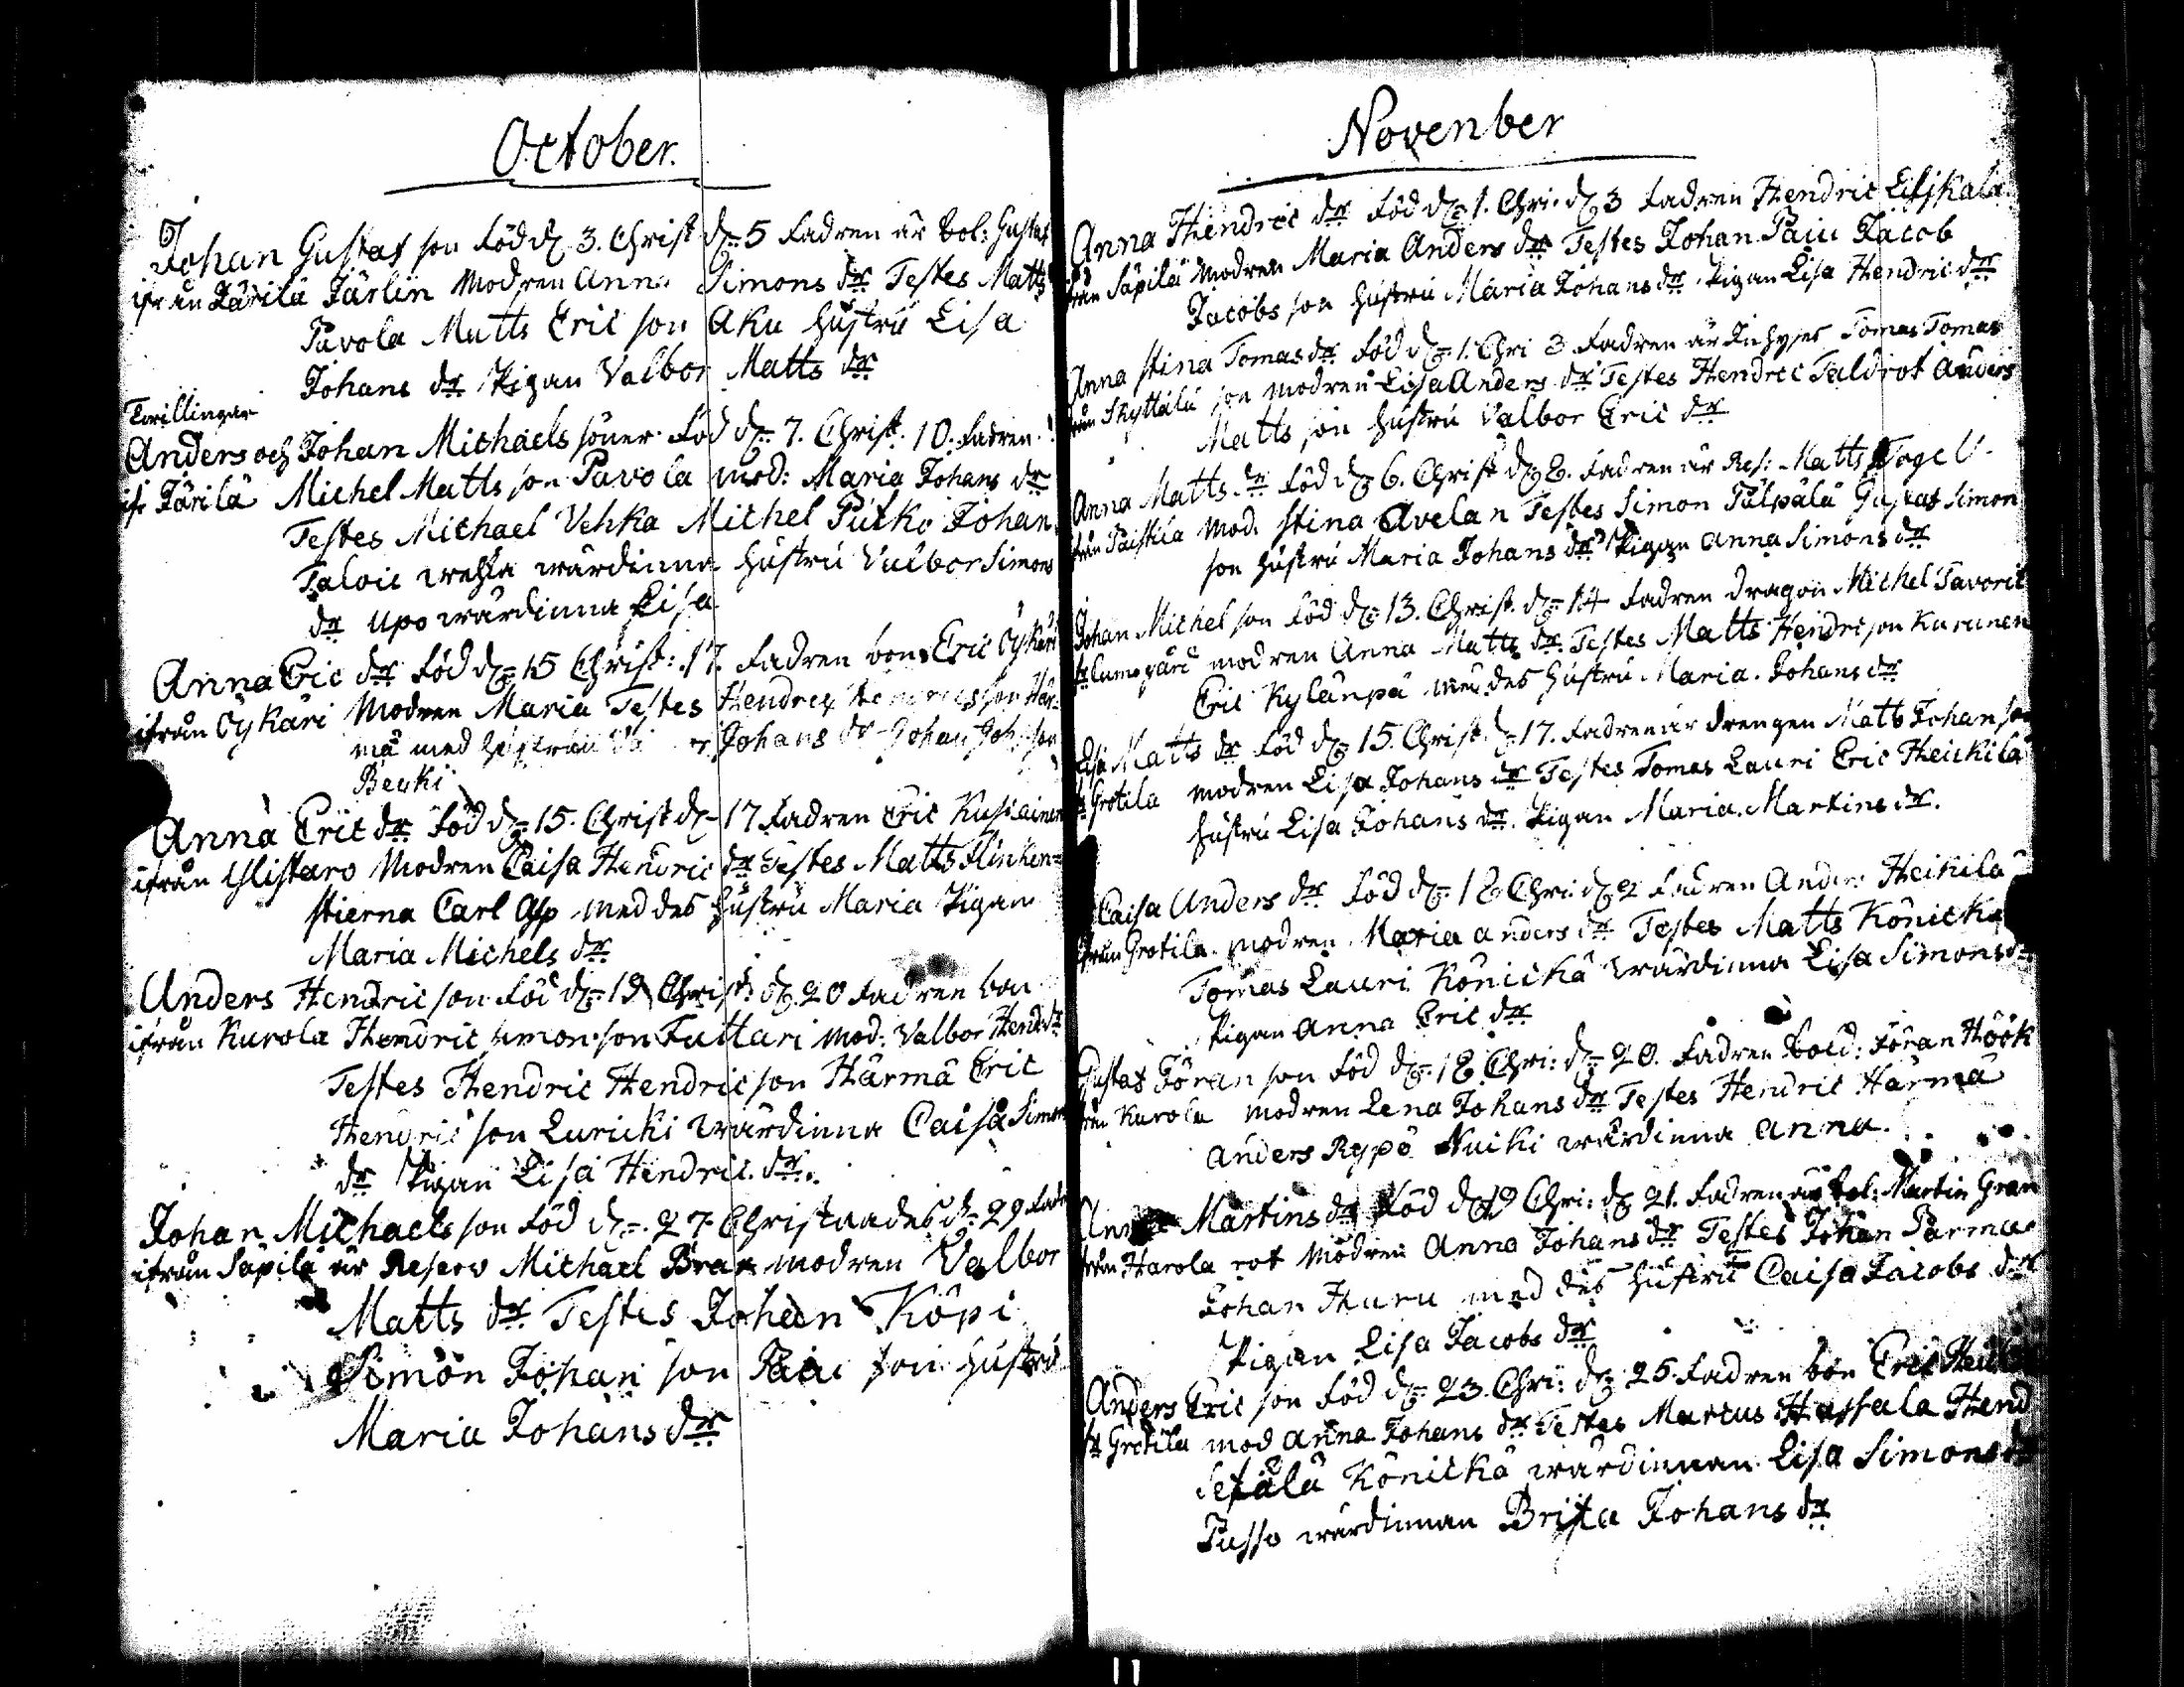 October.
Johan Gustaf son föd d. 3. Christ d. 5 Fadren är bol: Gustaf
ifrån Järilä Järlin Modren Anna Simons dr Testes Matts
Pavola Matts Eric son Aku hustru Lisa
Johans dr Pigan Valbor Matts dr
Tvillingar
Anders och Johan Michaels söner föd d. 7. Christ. 10. fadren
ifr Järilä Michel Matts son Pavola mod: Maria Johans dr
Testes Michael Vehka Michel Putko Johan
Taloic wehka wärdinna hustru Valbor Simons
dr Upo wärdinna Lisa
Anna Eric dr föd d. 15 Christ: 17. fadren bon Eric Öykäri
ifrån Öykäri Modren Maria Testes Hendrey son Här-
mä med hustrun Johans dr Johan Joh: son
Beuki
Anna Eric dr föd d. 15. Christ d. 17 Fadren Eric Kusiainen
ifrån Ylistaro Modren Caisa Hendric dr Testes Matts Flinken-
stierna Carl Asp med des hustru Maria Pigan
Maria Michels dr
Anders Hendric son föd d. 19 Christ: d. 20 Fadren bon
ifrån Kurola Hendric simon son Futtari mod: Valbor Hend: dr
Testes Hendric Hendric son Härmä Eric
Hendric son Luricki wärdinna Caisa Simon
dr Pigan Lisa Hendric dr.
Johan Michaels son föd d. 27. Christnades d. 29 Fadr
ifrån Säpilä är Reserv Michael Bra modren Valbor
Matts dr Testes Johan Köpi
Simon Johan son Paiu son hustru
Maria Johans dr
November
Anna Hendric dr föd d. 1. Chri. d. 3 Fadren Hendric Eiskala
från Säpilä Modren Maria Anders dr Testes Johan Paiu Jacob
Jacobs son hustru Maria Johans dr Pigan Lisa Hendric dr
Anna Stina Tomas dr föd d. 1. Chri 3 Fadren är Inhyses Tomas Tomas
från Skyttälä son modren Lisa Anders dr Testes Hendric Taldrot Anders
Matts son hustru Valbor Eric dr
Anna Matts dr föd d. 6. Christ d. 8. Fadren är Res: Matts Fogel
från Paistila Mod. Stina Avelan Testes Simon Pälpälä Gustaf Simon
son hustru Maria Johans dr Pigan Anna Simons dr
Johan Michel son föd d. 13. Christ. d. 14 Fadren dragon Michel Favorit
fr Cumogård modren Anna Matts dr Testes Matts Hendricson Kurunen
Eric Kylänpä med des hustru Maria Johans dr
Lisa Matts dr föd d. 15. Christ d. 17. Fadren är drengen Matts Johan son
fr Grotila modren Lisa Johans dr Testes Tomas Lauri Eric Heickilä
hustru Lisa Johans dr. Pigan Maria Martins dr.
Caisa Anders dr föd d. 18 Chri. d. 2 Fadren Ander: Heikilä
från Grotila modren Maria anders dr Testes Matts Könickä
Tomas Lauri Könickä wärdinna Lisa Simons dr
Pigan Anna Eric dr
Gustaf Jöran son föd d. 18 Chri: d. 20. Fadren Jöran Höök
från Karola modren Lena Johans dr Testes Hendric Härmä
Anders Rypö Nuiki wärdinna Anna.
Anna Martins dr föd d. 19 Chri: d. 21. Fadren är bol: Martin Gran
från Harola rot Modren Anna Johans dr Testes Johan Parma
Johan Huru med des hustru Caisa Jacobs dr
Pigan Lisa Jacobs dr
Anders Eric son föd d. 23. Chri: d. 25. Fadren bon Eric
fr Grotila mod Anna Johans dr Testes Marcus Hassala Hend
Sefälä Könickä wärdinnan Lisa Simons dr
Pusso wärdinnan Brita Johans dr